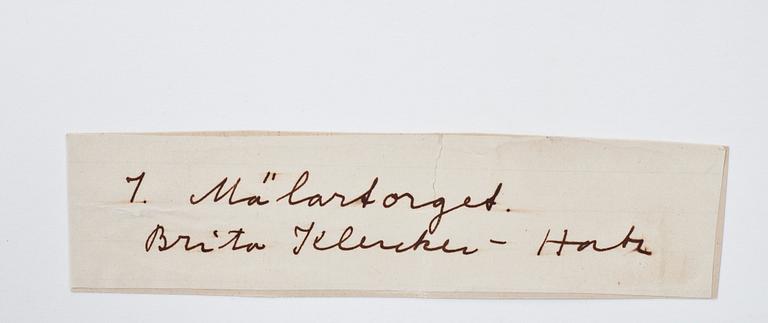 7. Mälartorget.
Brita Klercker - Hortz